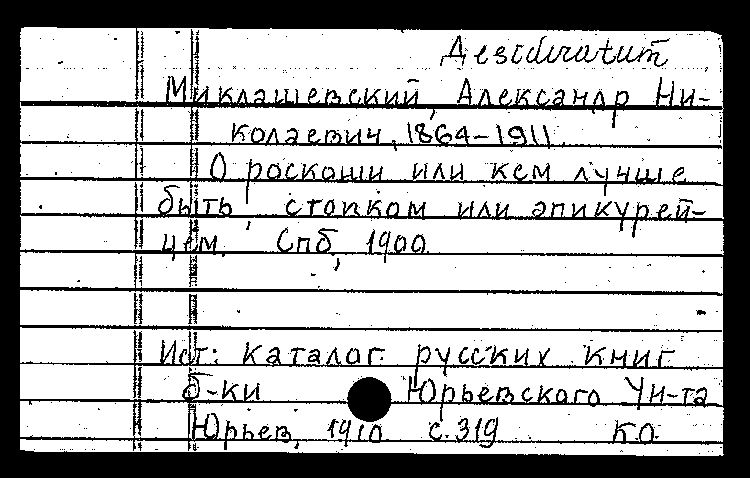 Desideratum
Миклашевский, Александр Ни-
колаевич, 1864-1911.
О роскоши или кем лучше
быть, стоиком или эпикурей-
цем. Спб, 1900
Ист: Каталог русских книг
б-ки Юрьевского Ун-та
Юрьев, 1910 с. 319 К.О.